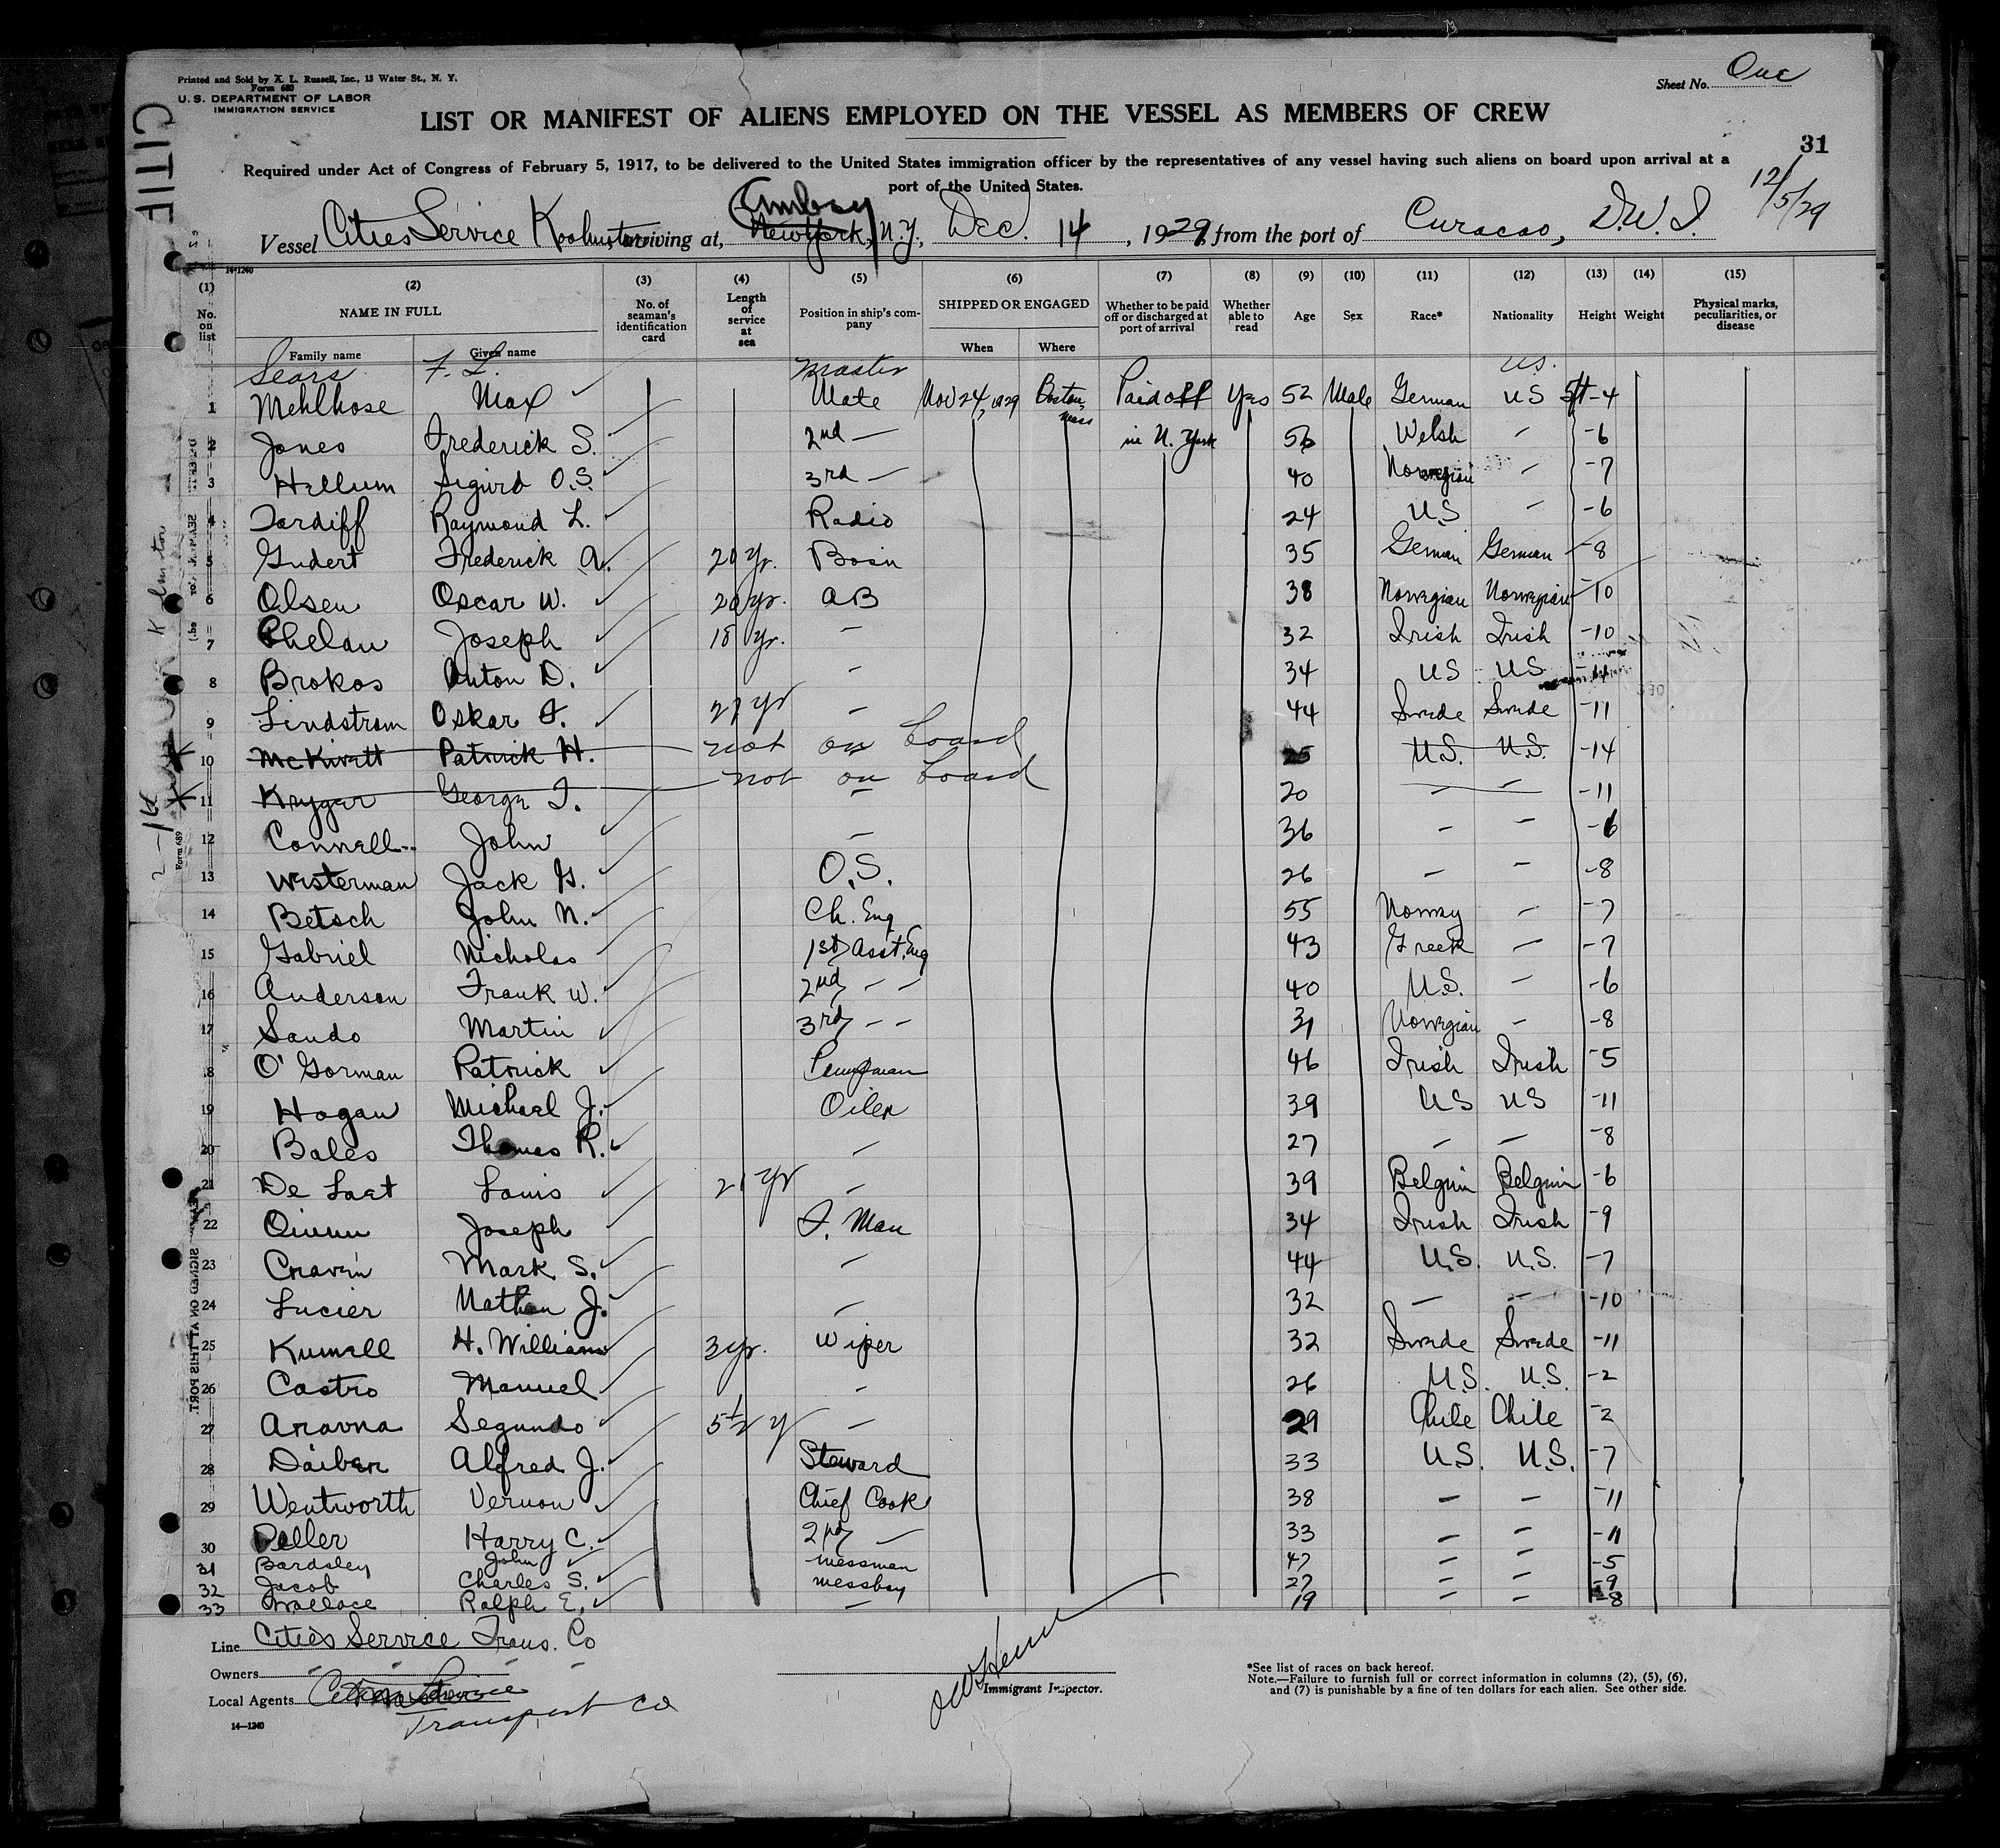 Printed and Sold by A. L. Russell, Inc., 13 Water St., N. Y.
Form 680
U. S. DEPARTMENT OF LABOR
IMMIGRATION SERVICE
Sheet No. One
LIST OR MANIFEST OF ALIENS EMPLOYED ON THE VESSEL AS MEMBERS OF CREW
31
Required under Act of Congress of February 5, 1917, to be delivered to the United States immigration officer by the representatives of any vessel having such aliens on board upon arrival at a
port of the United States.
12/5/29
Amboy
Vessel Cities Service arriving at, New York, N.Y., Dec. 14, 1929, from the port of Curacao, D.W.I.
14-1240
(1) (2) (3) (4) (5) (6) (7) (8) (9) (10) (11) (12) (13) (14) (15)
No. on list NAME IN FULL No. of seaman's identification card Length of service at sea Position in ship's company SHIPPED OR ENGAGED Whether to be paid off or discharged at port of arrival Whether able to read Age Sex Race* Nationality Height Weight Physical marks, peculiarities, or disease
Family name Given name When Where
Sears F. L. Master US.
1 Mehlhose Max Mate Nov 24, 1929 Boston, Mass Paid off Yes 52 Male German US 5ft-4
2 Jones Frederick S. 2nd — in N. York 56 Welsh - -6
3 Hellum Sigurd O.S. 3rd — 40 Norwegian - -7
4 Tardiff Raymond L. Radio 24 U.S - -6
5 Gudert Frederick A. 20 yr. Bosn 35 German German -8
6 Olsen Oscar W. 20 yr. AB 38 Norwegian Norwegian -10
7 Phelan Joseph 18 yr. - 32 Irish Irish -10
8 Brokos Anton D. - 34 US US -11
9 Lindstrom Oskar F. 27 yr - 44 Swede Swede -11
10 McKivett Patrick H. not on board 25 U.S. U.S. -14
11 Kryger George J. not on board - 20 - - -11
12 Connell John - 36 - - -6
13 Westerman Jack G. O.S. 26 - - -8
14 Betsch John N. Ch. Eng 55 Norway - -7
15 Gabriel Nicholas 1st Asst. Eng 43 Greek - -7
16 Anderson Frank W. 2nd - - 40 U.S. - -6
17 Sando Martin 3rd - - 31 Norwegian - -8
18 O'Gorman Patrick Pumpman 46 Irish Irish -5
19 Hogan Michael J. Oiler 39 US US -11
20 Bales Thomas R. - 27 - - -8
21 De Laet Louis 21 yr - 39 Belgium Belgium -6
22 Quinn Joseph F. Man 34 Irish Irish -9
23 Craven Mark S. - 44 U.S. U.S. -7
24 Lucier Nathan J. - 32 - - -10
25 Kumell H. William 3 yr. Wiper 32 Swede Swede -11
26 Castro Manuel - 26 U.S. U.S. -2
27 Aravna Segundo 5 1/2 y - 29 Chile Chile -2
28 Daiber Alfred J. Steward 33 U.S. U.S. -7
29 Wentworth Vernon Chief Cook 38 - - -11
30 Peller Harry C. 2nd — 33 - - -11
31 Bardsley John messman 47 - - -5
32 Jacob Charles S. messboy 27 - - -9
33 Wallace Ralph E. - 19 - - -8
Line Cities Service Trans. Co
Owners - - - -
Local Agents Cities Service
Transport Co
Immigrant Inspector.
*See list of races on back hereof.
Note.—Failure to furnish full or correct information in columns (2), (5), (6),
and (7) is punishable by a fine of ten dollars for each alien. See other side.
14—1240
CITIF
Form 689
SIGNED ON AT THIS PORT.